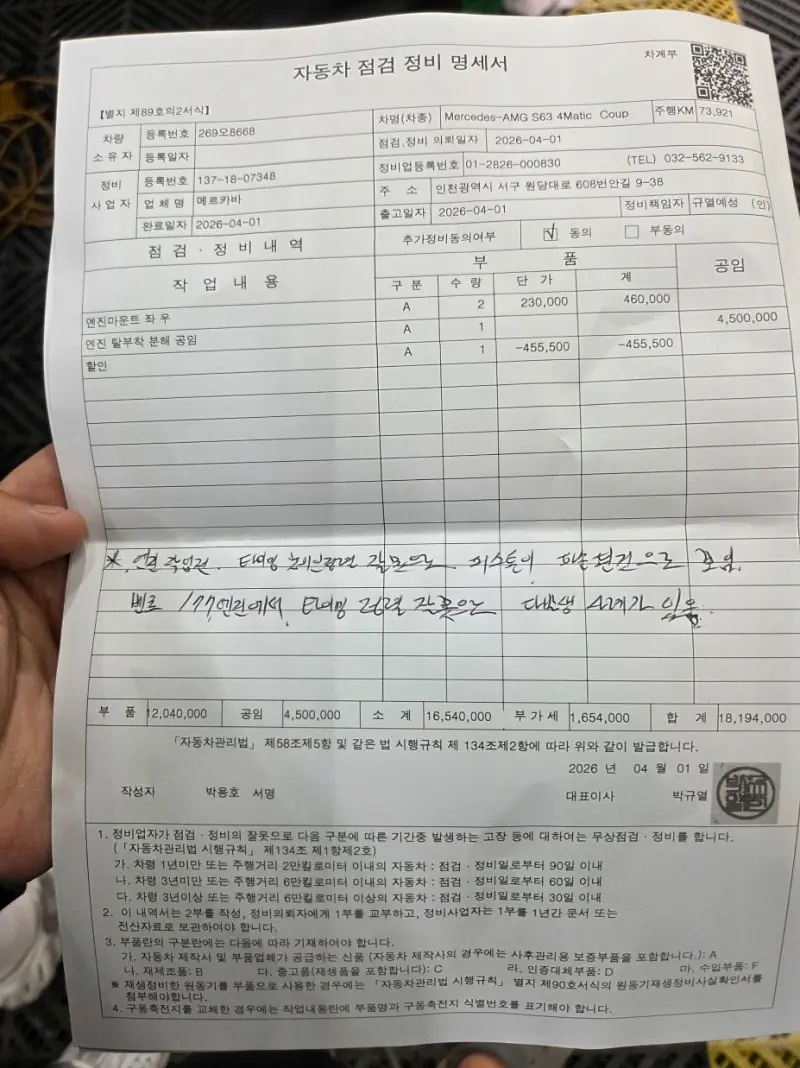 자동차 점검 정비 명세서
차계부
【별지 제89호의2서식】
차량 소유자 등록번호 269오8668 차명(차종) Mercedes-AMG S63 4Matic Coup 주행KM 73,921
등록일자 점검.정비 의뢰일자 2026-04-01
정비 사업자 등록번호 137-18-07348 정비업등록번호 01-2826-000830 (TEL) 032-562-9133
업체명 메르카바 주 소 인천광역시 서구 원당대로 608번안길 9-38
완료일자 2026-04-01 출고일자 2026-04-01 정비책임자 규열예성 (인)
점검 · 정비내역 추가정비동의여부 동의 부동의
작업내용 부품 공임
구분 수량 단가 계
엔진마운트 좌우 A 2 230,000 460,000
엔진 탈부착 분해 공임 A 1 4,500,000
할인 A 1 -455,500 -455,500
※. 작업전. 타이밍 피스톤이 파손된것으로 보임.
벤츠 177엔진에서 타이밍 사례가 있음.
부품 12,040,000 공임 4,500,000 소계 16,540,000 부가세 1,654,000 합계 18,194,000
「자동차관리법」 제58조제5항 및 같은 법 시행규칙 제 134조제2항에 따라 위와 같이 발급합니다.
2026 년 04 월 01 일
작성자 박용호 서명 대표이사 박규열
1. 정비업자가 점검 · 정비의 잘못으로 다음 구분에 따른 기간중 발생하는 고장 등에 대하여는 무상점검 · 정비를 합니다.
(「자동차관리법 시행규칙」 제134조 제1항제2호)
가. 차령 1년미만 또는 주행거리 2만킬로미터 이내의 자동차 : 점검 · 정비일로부터 90일 이내
나. 차령 3년미만 또는 주행거리 6만킬로미터 이내의 자동차 : 점검 · 정비일로부터 60일 이내
다. 차령 3년이상 또는 주행거리 6만킬로미터 이상의 자동차 : 점검 · 정비일로부터 30일 이내
2. 이 내역서는 2부를 작성, 정비의뢰자에게 1부를 교부하고, 정비사업자는 1부를 1년간 문서 또는
전산자료로 보관하여야 합니다.
3. 부품란의 구분란에는 다음에 따라 기재하여야 합니다.
가. 자동차 제작사 및 부품업체가 공급하는 신품 (자동차 제작사의 경우에는 사후관리용 보증부품을 포함합니다.): A
나. 재제조품: B 다. 중고품(재생품을 포함합니다): C 라. 인증대체부품: D 마. 수입부품: F
※ 재생정비한 원동기를 부품으로 사용한 경우에는 「자동차관리법 시행규칙」 별지 제90호서식의 원동기재생정비사실확인서를
첨부해야합니다.
4. 구동축전지를 교체한 경우에는 작업내용란에 부품명과 구동축전지 식별번호를 표기해야 합니다.